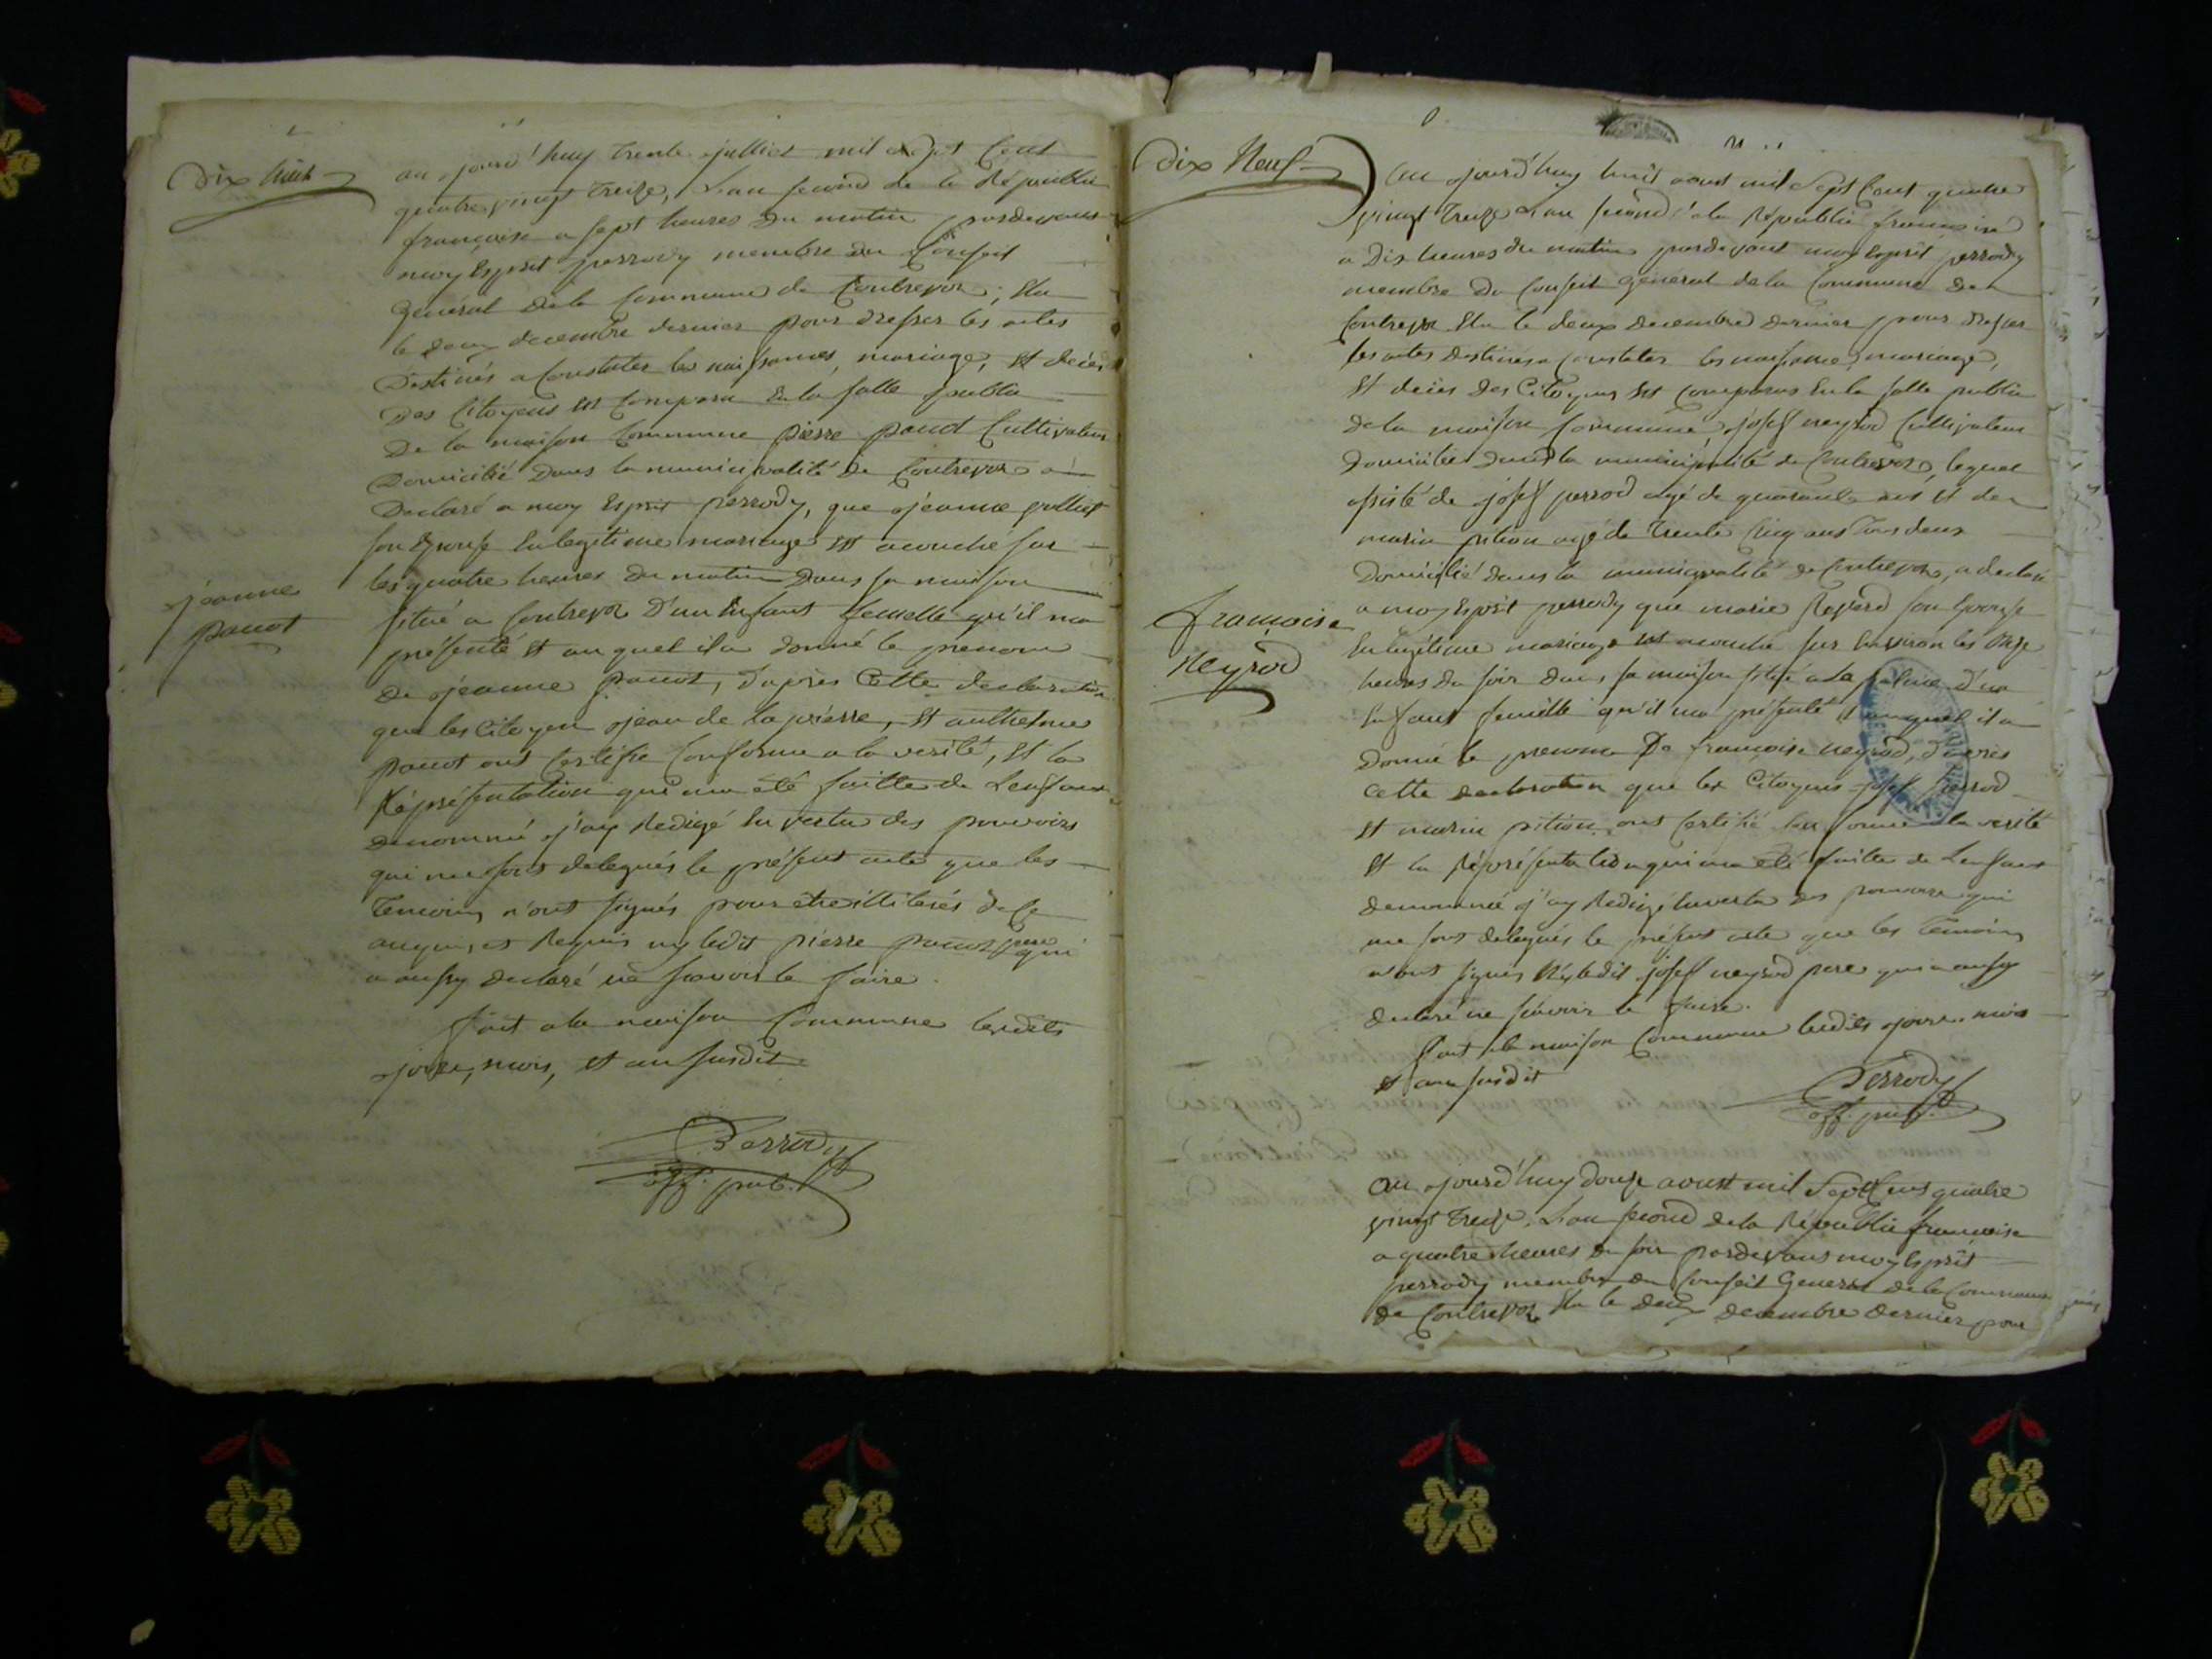 Dix huit
au jourd'huy trente juilliet mil sept cent
quatre vingt treize, L'an second de la République
françoise a sept heures du matin pardevant
moy Esprit perrody membre du Conseil
Général de la Commune de Contrevoz, élu
le deux decembre dernier pour dresser les actes
Destinés a Constater les naissances, mariage, et décès
Des Citoyens est comparu En la salle publie
De la maison Commune pierre panot Cultivateur
Domicilié Dans la municipalité de Contrevoz a
Declaré a moy Esprit perrody, que jeanne
son Epouse En legitime mariage est acouché sur
les quatre heures du matin Dans sa maison
située a Contrevoz D'un Enfant femelle qu'il ma
présenté et au quel il a donné le prenom
De jeanne panot, D'apres Cette declaration
que les Citoyen jean de la pierre, et anthelme
panot ont certifié Conforme a la verité, et la
Réprésentation qui ma été faitte de L'enfant
denommé j'ay Redigé En vertu des pouvoirs
qui me sont delegués le présent acte que les
Temoins n'ont signés pour etre illiterés de ce
enquis, et Requis ny ledit pierre panot pere qui
a aussy declaré ne scavoir le faire.
fait a la maison Commune lesdits
jour, mois, et an susdit
Perrody
off. pub.
jeanne
panot
Dix Neuf
Au jourd'huy huit aoust mil Sept Cent quatre
vingt treize L'an second de la République françoise
a Dix heures du matin pardevant moy Esprit perrody
membre Du Conseil général de la Commune de
Contrevoz élu le deux decembre dernier pour dresser
les actes destinés a Constater les naissance, mariage,
et décès des Citoyens est comparus En la salle publie
de la maison Commune, josef neyrod Cultivateur
domicilié dans la municipalité de Contrevoz, lequel
assisté de josef perrod agé de quarante ans et de
marin pition agé de trente cinq ans tous deux
Domicilié dans la municipalité de Contrevoz, a declaré
a moy Esprit perrody que marie son Epouse
En légitime mariage est acouché sur Environ les onze
heures du soir dans sa maison située a La d'un
Enfant femelle qu'il ma présenté et auquel il a
Donné le prenom De françoise neyrod, D'apres
Cette declaration que les Citoyens josef perrod
et marin pition ont certifié Conforme a la verité
et la Réprésentation qui ma été faitte de L'enfant
denommé j'ay Redigé En vertu des pouvoirs qui
me sont delegués le présent acte que les Temoins
n'ont signés Ny ledit josef neyrod pere qui a aussy
declaré ne scavoir le faire.
fait a la maison Commune lesdits jour, mois
et an susdit
Perrody
off. pub.
françoise
Neyrod
Au jourd'huy douze aoust mil Sept Cent quatre
vingt treize, L'an second de la République françoise
a quatre heures du soir pardevant moy Esprit
perrody membre du Conseil General de la Commune
de Contrevoz élu le deux decembre dernier pour